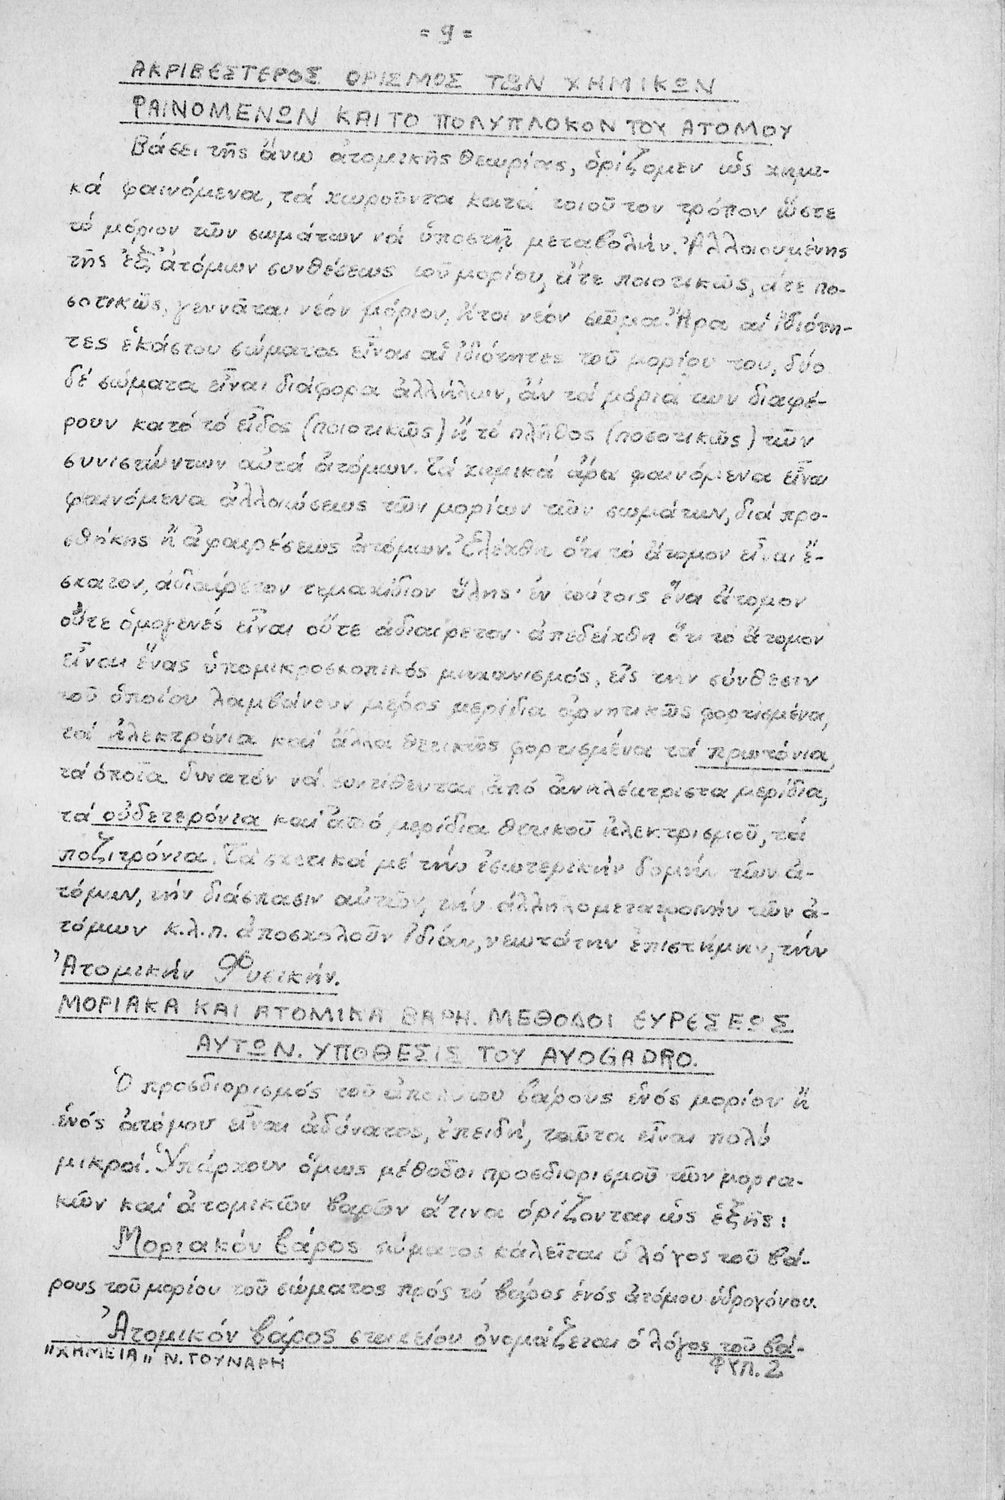 = 9 =
ΑΚΡΙΒΕΣΤΕΡΟΣ ΟΡΙΣΜΟΣ ΤΩΝ ΧΗΜΙΚΩΝ
ΦΑΙΝΟΜΕΝΩΝ ΚΑΙ ΤΟ ΠΟΛΥΠΛΟΚΟΝ ΤΟΥ ΑΤΟΜΟΥ
Βάσει τῆς ἄνω ἀτομικῆς θεωρίας, ὁρίζομεν ὡς χημι-
κά φαινόμενα, τά χωροῦντα κατά τοιοῦτον τρόπον ὥστε
τό μόριον τῶν σωμάτων νά ὑποστῇ μεταβολήν. Ἀλλοιουμένης
τῆς ἐξ ἀτόμων συνθέσεως τοῦ μορίου, εἴτε ποιοτικῶς, εἴτε πο-
σοτικῶς, γεννᾶται νέον μόριον, ἤτοι νέον σῶμα. Ἄρα αἱ ἰδιότη-
τες ἑκάστου σώματος εἶναι αἱ ἰδιότητες τοῦ μορίου του, δύο
δέ σώματα εἶναι διάφορα ἀλλήλων, ἄν τά μόρια των διαφέ-
ρουν κατά τό εἶδος (ποιοτικῶς) ἤ τό πλῆθος (ποσοτικῶς) τῶν
συνιστώντων αὐτά ἀτόμων. Τά χημικά ἄρα φαινόμενα εἶναι
φαινόμενα ἀλλοιώσεως τῶν μορίων τῶν σωμάτων, διά προ-
σθήκης ἤ ἀφαιρέσεως ἀτόμων. Ἐλέχθη ὅτι τό ἄτομον εἶναι ἔ-
σχατον, ἀδιαίρετον τεμαχίδιον ὕλης· ἐν τούτοις ἕνα ἄτομον
οὔτε ὁμογενές εἶναι οὔτε ἀδιαίρετον· ἀπεδείχθη ὅτι τό ἄτομον
εἶναι ἕνας ὑπομικροσκοπικός μηχανισμός, εἰς την σύνθεσιν
τοῦ ὁποίου λαμβάνουν μέρος μερίδια ἀρνητικῶς φορτισμένα,
τά ἠλεκτρόνια καί ἄλλα θετικῶς φορτισμένα τά πρωτόνια,
τά ὁποῖα δυνατόν νά συντίθενται ἀπό ἀνηλέκτριστα μερίδια,
τά οὐδετερόνια καί ἀπό μερίδια θετικοῦ ἠλεκτρισμοῦ, τά
ποζιτρόνια. Τά σχετικά μέ τήν ἐσωτερικήν δομήν τῶν ἀ-
τόμων, τήν διάσπασιν αὐτῶν, τήν ἀλληλομετατροπήν τῶν ἀ-
τόμων κ.λ.π. ἀποσχολοῦν ἰδίαν, νεωτάτην ἐπιστήμην, τήν
Ἀτομικήν Φυσικήν.
ΜΟΡΙΑΚΑ ΚΑΙ ΑΤΟΜΙΚΑ ΒΑΡΗ. ΜΕΘΟΔΟΙ ΕΥΡΕΣΕΩΣ
ΑΥΤΩΝ. ΥΠΟΘΕΣΙΣ ΤΟΥ AVOGADRO.
Ὁ προσδιορισμός τοῦ ἀπολύτου βάρους ἑνός μορίου ἤ
ἑνός ἀτόμου εἶναι ἀδύνατος, ἐπειδή, ταῦτα εἶναι πολύ
μικρά. Ὑπάρχουν ὅμως μέθοδοι προσδιορισμοῦ τῶν μορια-
κῶν καί ἀτομικῶν βαρῶν ἅτινα ὁρίζονται ὡς ἑξῆς:
Μοριακόν βάρος σώματος καλεῖται ὁ λόγος τοῦ βά-
ρους τοῦ μορίου τοῦ σώματος πρός τό βάρος ἑνός ἀτόμου ὑδρογόνου.
Ἀτομικόν βάρος στοιχείου ὀνομάζεται ὁ λόγος τοῦ βά-
"ΧΗΜΕΙΑ" Ν. ΤΟΥΝΑΡΗ
ΦΥΛ. 2